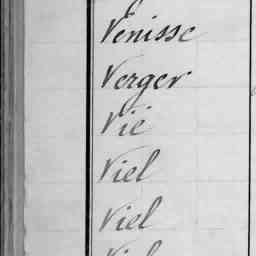 Venisse
Verger
Vié
Viel
Viel
Viel